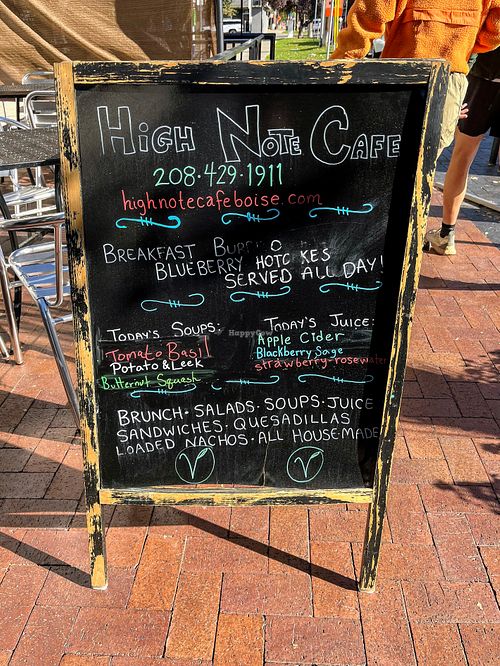 High Note Cafe
208·429·1911
highnotecafeboise.com
Breakfast Bur O
Blueberry Hotc kes
Served All Day!
Today's Soups:
Tomato Basil
Potato & Leek
Butternut Squash
Today's Juice:
Apple Cider
Blackberry Sage
strawberry-rosewater
Brunch · Salads · Soups · Juice
Sandwiches · Quesadillas
Loaded Nachos · All House-Made
V V
HappyCow